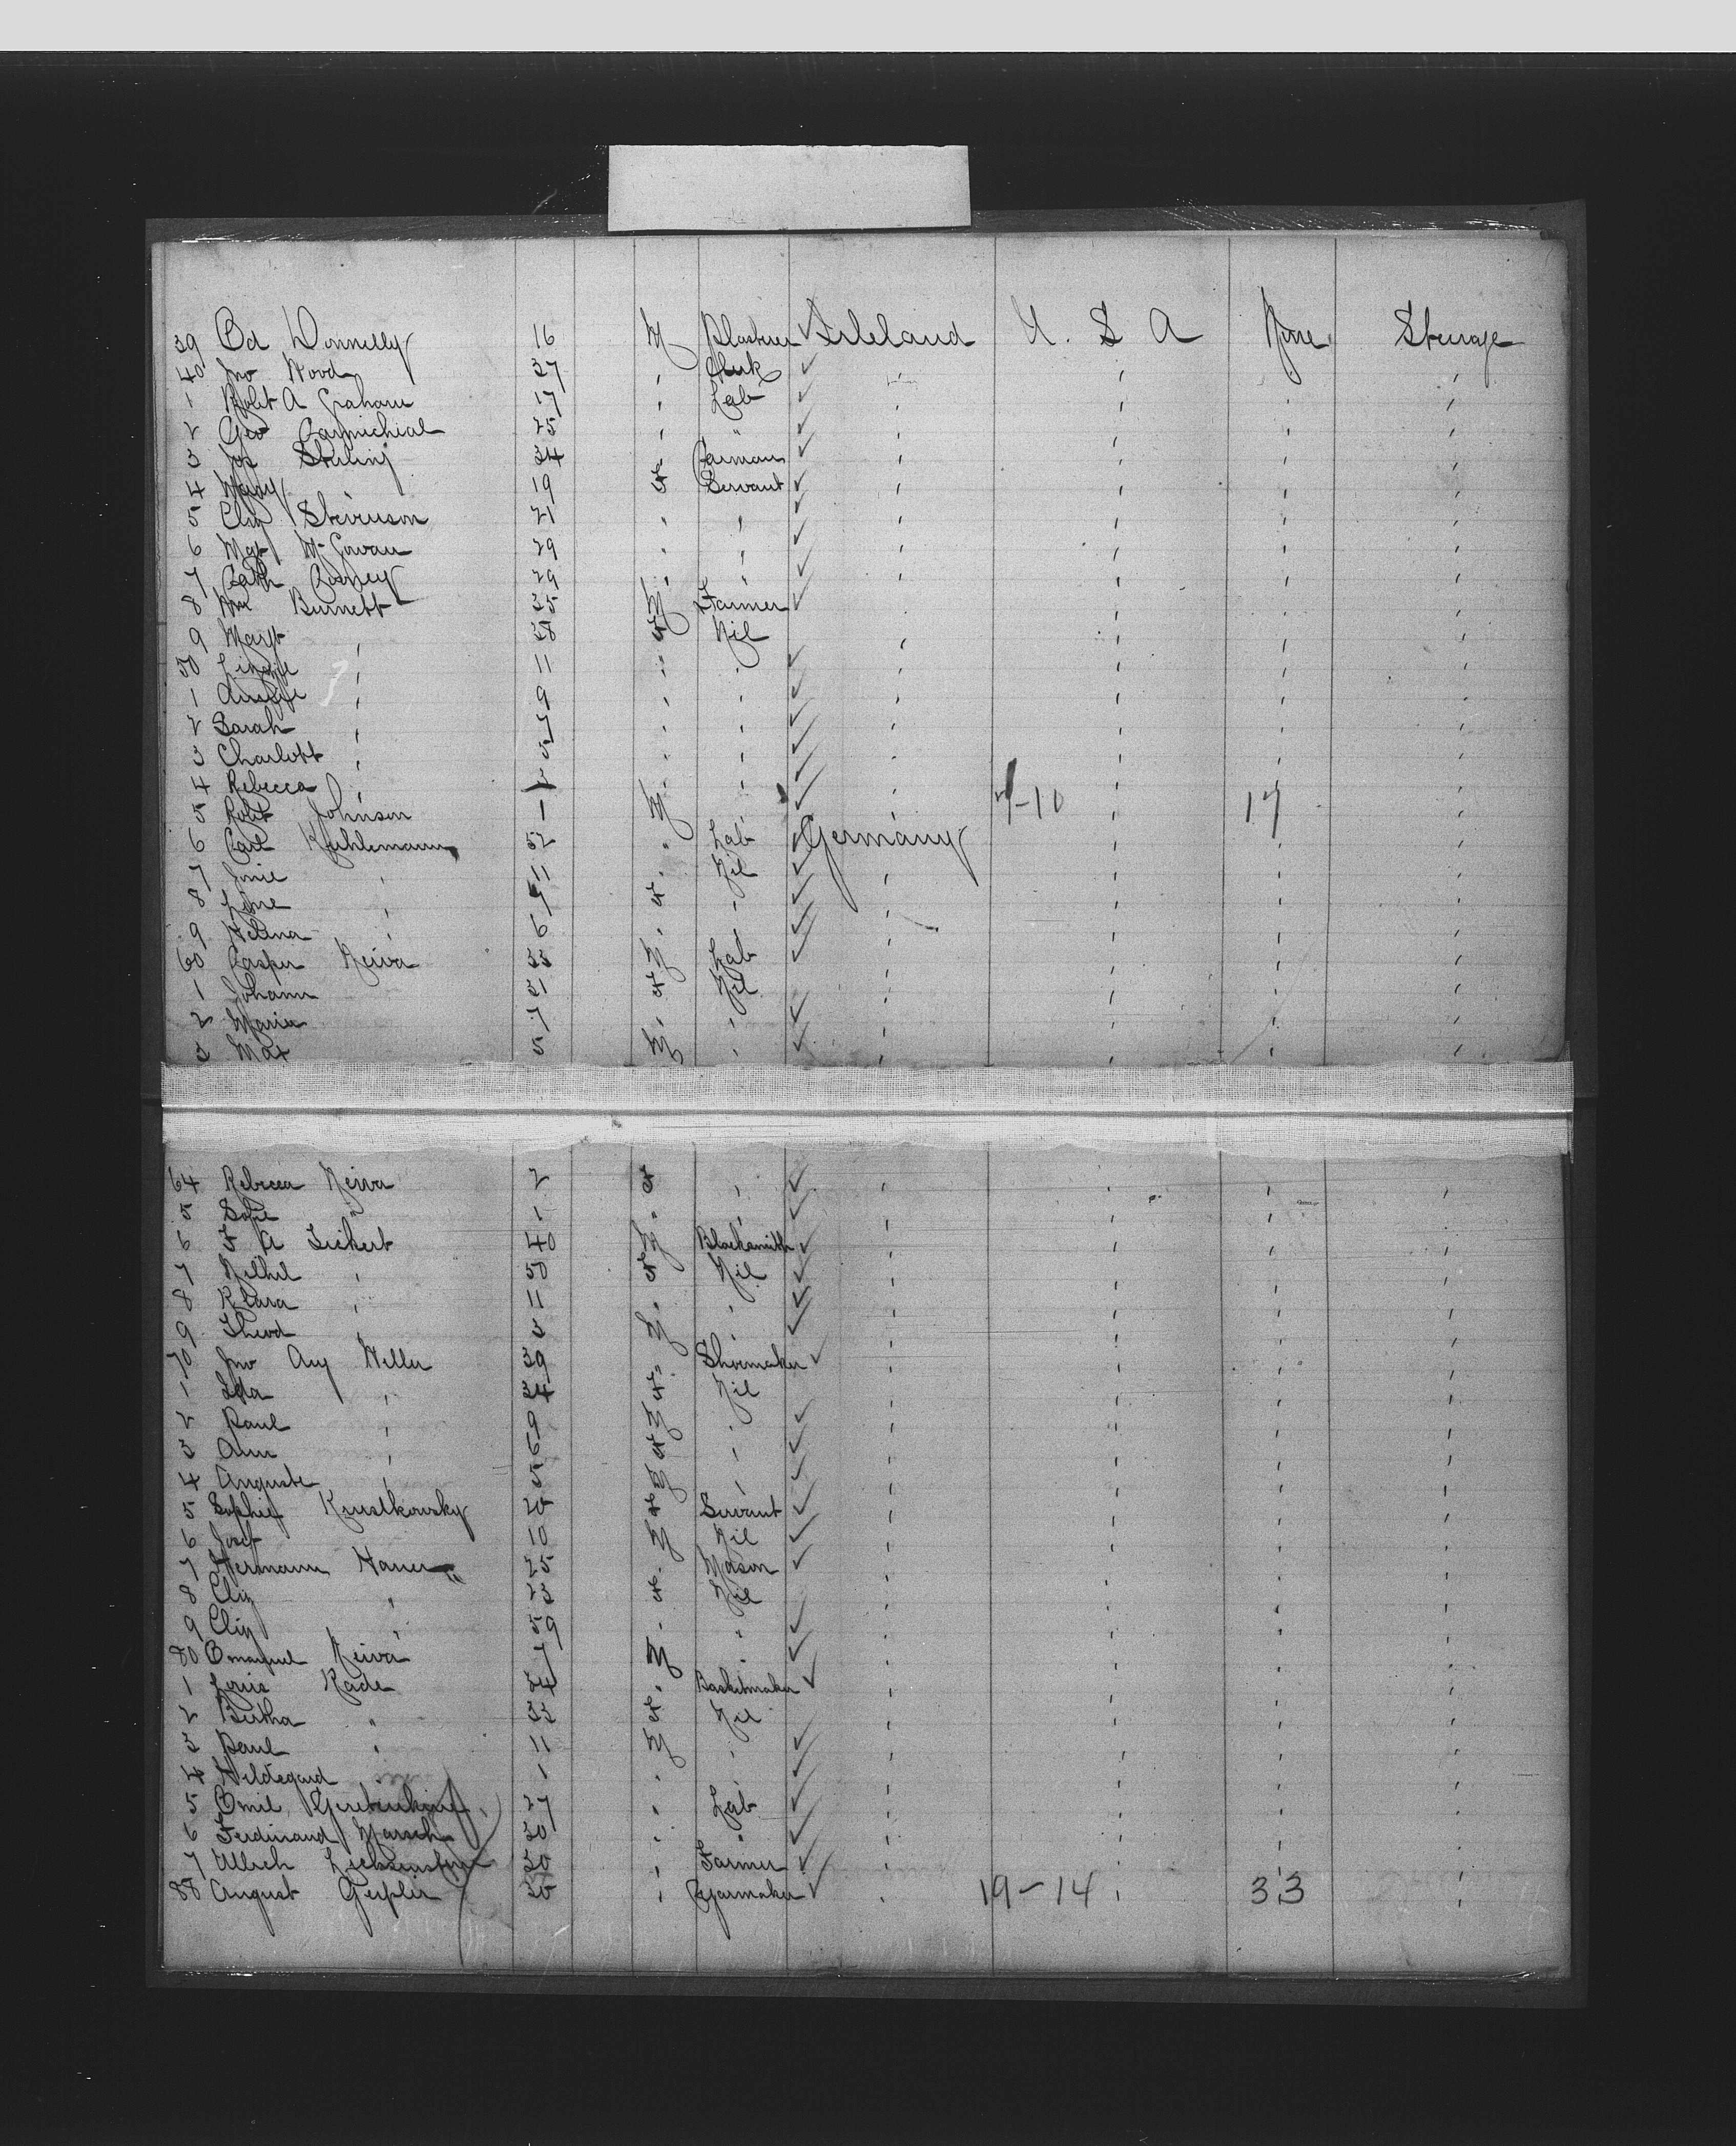 39 Ed Donnelly 16 M Plasterer ✓ Irleland U. S A None Steerage
40 Jno Wood 37 " Clerk ✓ " " " "
1 Robt A Graham 17 " Lab ✓ " " " "
2 Geo Carmichial 25 " " ✓ " " " "
3 Jos Sterling 34 " Carman ✓ " " " "
4 Mary " 19 F Servant ✓ " " " "
5 Eliz Stevenson 21 " " ✓ " " " "
6 Mgt McGowan 29 " " ✓ " " " "
7 Cath 29 " " ✓ " " " "
8 Wm Burnett 35 M Farmer ✓ " " " "
9 Margt " 38 F Nil " " " "
50 Lizzie " 11 " " ✓ " " " "
1 " 9 " " ✓ " " " "
2 Sarah " 7 " " ✓ " " " "
3 Charlott " 5 " " ✓ " " " "
4 Rebecca " " " ✓ " " " "
5 Robt Johnson 1 M " ✓ " 7-10 " 17 "
6 Carl Kuhlemann 52 " Lab ✓ Germany " " "
7 11 " Nil ✓ " " " "
8 Line " 7 F " ✓ " " " "
9 Helena " 6 " " ✓ " " " "
60 Casper Neiva 33 M Lab ✓ " " " "
1 Johann 31 F Nil " " " "
2 Maria 7 " " ✓ " " " "
3 Max 5 M " ✓ " " " "
64 Rebecca Neiva 2 F " ✓ " " " "
5 Sofie " 1 " " ✓ " " " "
6 F A Zickert 40 M Blacksmith ✓ " " " "
7 " 50 F Nil ✓ " " " "
8 Klara " 11 " " ✓ " " " "
9 Theod " 3 M " ✓ " " " "
70 Jno Aug Heller 39 " Shoemaker ✓ " " " "
1 Ida " 34 F Nil " " " "
2 Paul " 9 M " ✓ " " " "
3 Ann " 6 F " ✓ " " " "
4 Auguste " 5 M " ✓ " " " "
5 Sophie 20 F Servant ✓ " " " "
6 Josef 10 M Nil ✓ " " " "
7 Hermann 25 " Mason ✓ " " " "
8 Eliz " 23 F Nil " " " "
9 Eliz " 59 " " ✓ " " " "
80 Emanuel Neiva 7 M " ✓ " " " "
1 Louis Rade 34 " Basketmaker ✓ " " " "
2 Bertha " 33 F Nil " " " "
3 Paul " 11 M " ✓ " " " "
4 Hildegard " 1 " " ✓ " " " "
5 Emil 27 " Lab ✓ " " " "
6 Ferdinand Marsch 30 " " ✓ " " " "
7 Ullrich 30 " Farmer ✓ " " " "
88 August Geipler 30 " Cigarmaker ✓ " 19-14 " 33 "